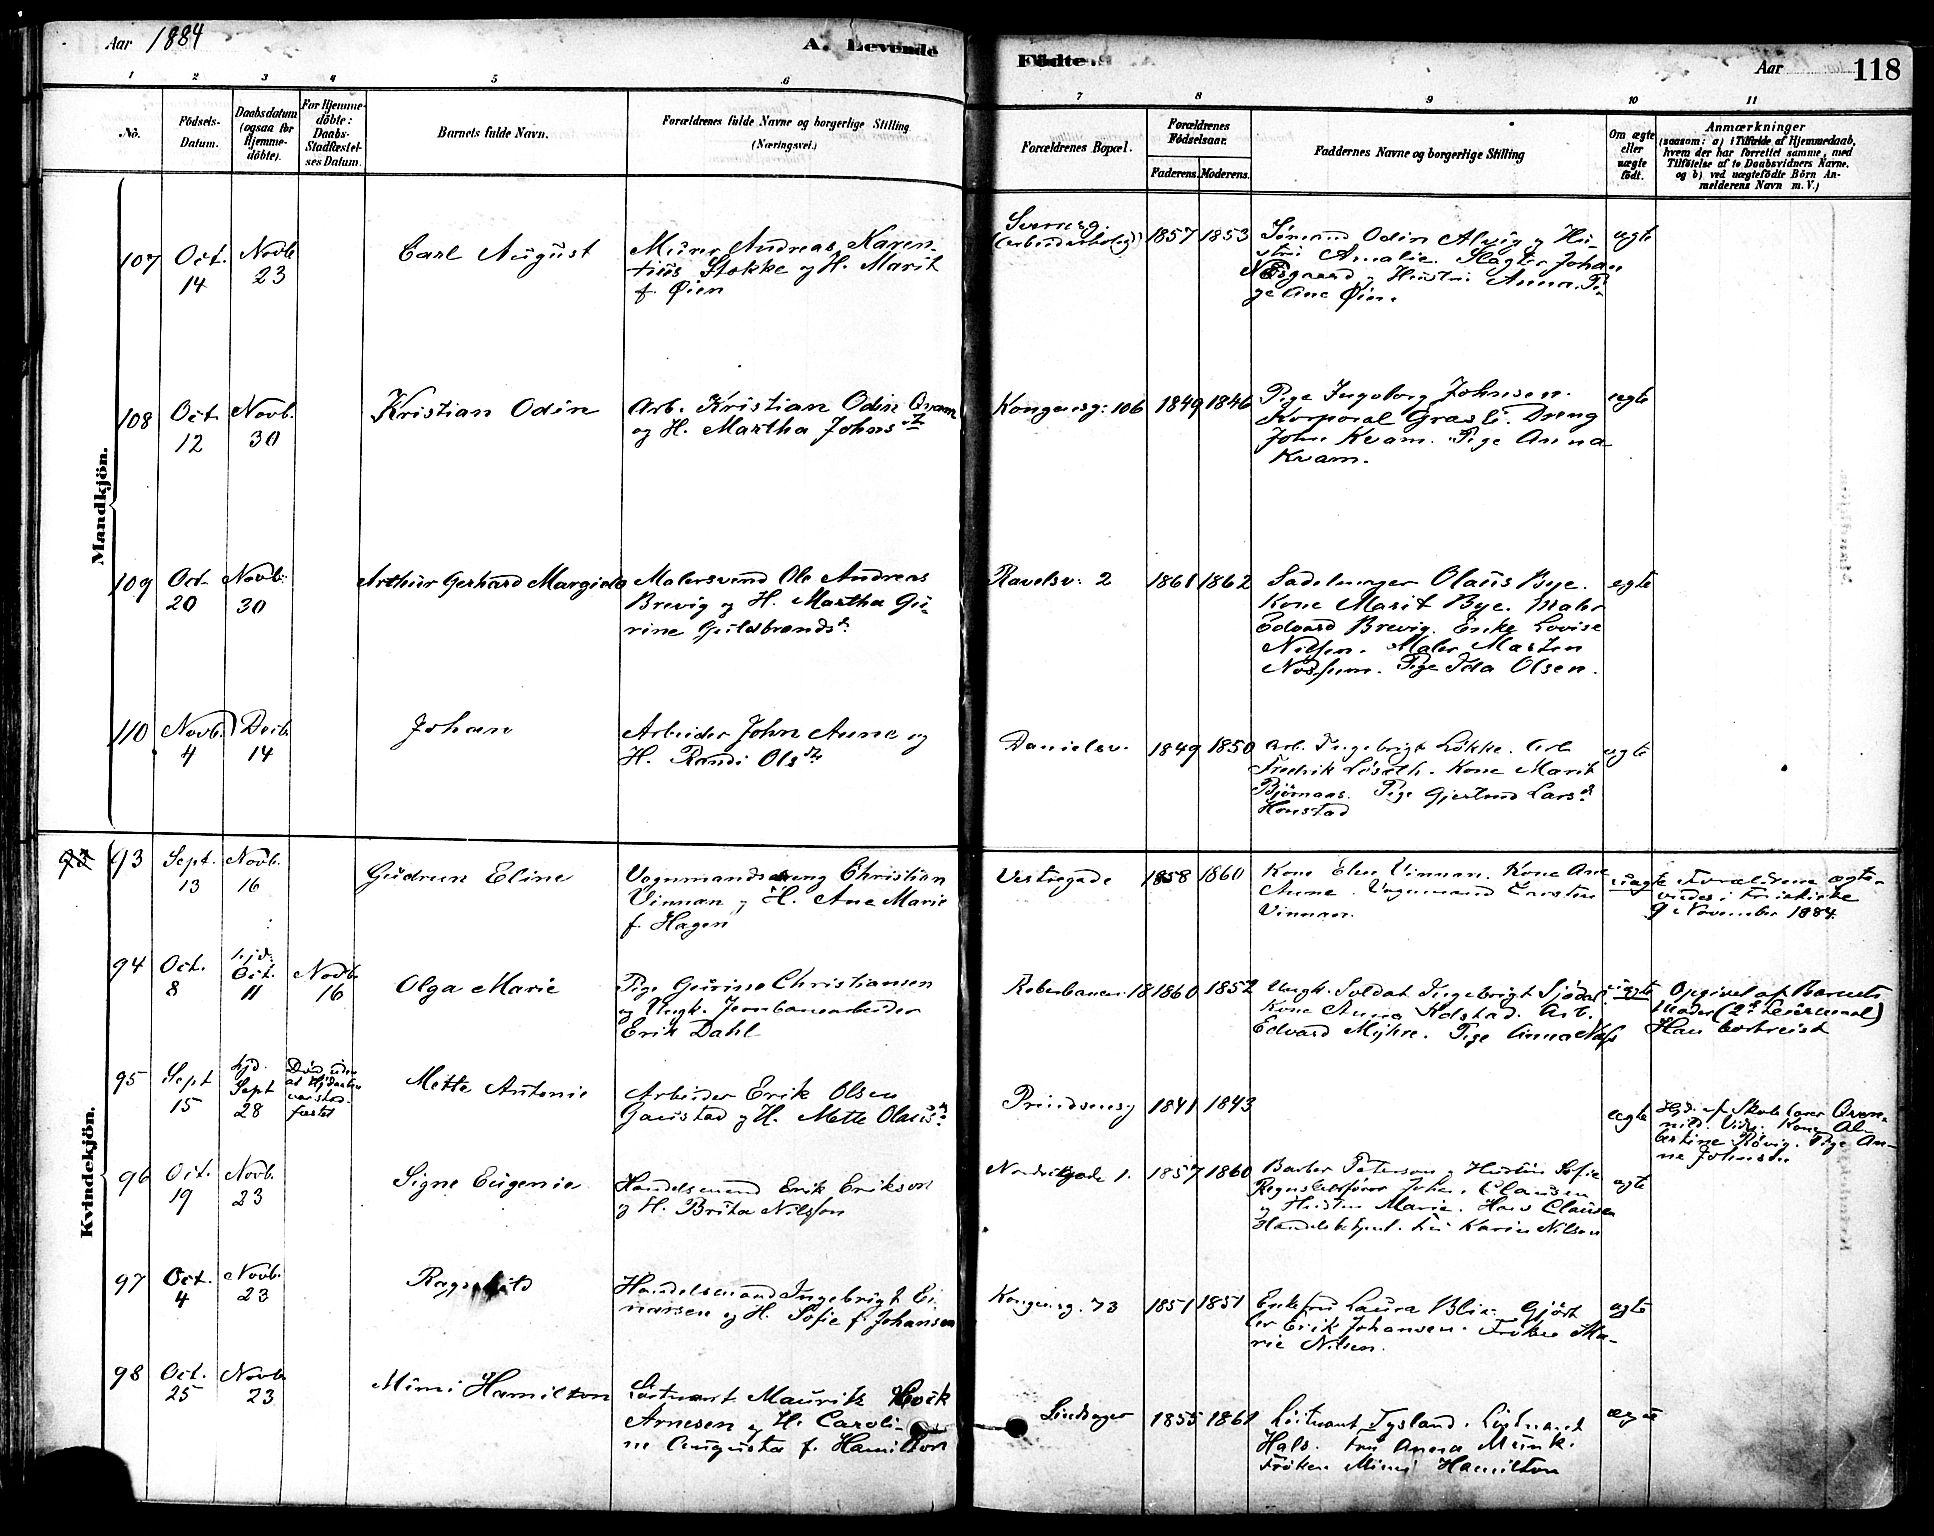 Aar 1884
A. Levende
Fødte.
Aar
118
1 2 3 4 5 6 7 8 9 10 11
No.
Födsels-Datum.
Daabsdatum (ogsaa for Hjemme-döbte).
For Hjemme-döbte: Daabs-Stadfæstel-ses Datum.
Barnets fulde Navn.
Forældrenes fulde Navne og borgerlige Stilling
(Næringsvei.)
Forældrenes Bopæl.
Forældrenes Födselsaar.
Faderens. Moderens.
Faddernes Navne og borgerlige Stilling
Om ægte eller uægte födt.
Anmærkninger
(saasom: a) i Tilfælde af Hjemmedaab,
hvem der har forrettet samme, med
Tilföielse af to Daabsvidners Navne.
og b) ved uægtefödte Börn An-
melderens Navn m. V.)
Mandkjön.
107 Oct. 14 Novb. 23 Carl August
Murer Andreas Karen-
tius Stokke og H. Marit
f. Øien
(Arbeiderbolig) 1857 1853
Sømand Odin Alvig og Hu-
stru Amalie. Slagter Johan
Næsgaard og Hustru Anna. Pi-
ge Ane Øien.
ægte
108 Oct. 12 Novb. 30 Kristian Odin
Arb. Kristian Odin Qvam
og H. Martha Johnsdr.
Kongensg: 106 1849 1846
Pige Ingeborg Johnsen.
Korporal Grasli. Dreng
John Kvam. Pige Anna
Kvam.
ægte
109 Oct. 20 Novb. 30 Arthur Gerhard Margido
Malersvend Ole Andreas
Brevig og H. Martha Gu-
rine Guldbrandsdr.
Ravelsv: 2 1861 1862
Sadelmager Olaus Bye.
Kone Marit Bye. Maler
Edvard Brevig. Enke Lovise
Nilsen. Maler Marten
Nossum. Pige Ida Olsen.
ægte
110 Novb. 4 Decb. 14 Johan
Arbeider John Aune og
H. Randi Olsdr.
Danielsv. 1849 1850
Arb. Ingebrigt Løkke. Arb.
Fredrik Løseth. Kone Marit
Bjørnaas. Pige Gjertrud Larsdr.
Honstad
ægte
Kvindekjön.
93 93 Sept. 13 Novb. 16 Gudrun Eline
Vognmandsdreng Christian
Vinnan og H. Ane Marie
f. Hagen
Vestregade 1858 1860
Kone Elen Vinnan. Kone Ane
Aune. Vognmand Carsten
Vinnan.
uægte
Forældrene ægte-
viedes i
9 November 1884
94 Oct. 8 hjd. Oct. 11 Novb. 16 Olga Marie
Pige Gurine Christiansen
og Ungk. Jernbanearbeider
Erik Dahl
Reberbanen 18 1860 1852
Ungk. Soldat Ingebrigt Sjødal
Kone Anna Kolstad. Arb.
Edvard Myhre. Pige Anna Næss
uægte
Opgivet af Barnets
Moder (2det Leiermaal)
Han bortreist
95 Sept 15 hjd. Sept 28
Død uden at Hjdaaben var stad-fæstet
Mette Antonie
Arbeider Erik Olsen
Gaustad og H. Mette Olausdr.
Prindsensg 1841 1843
ægte
Hjd. af Skolelærer Qven-
nild. Vidn. Kone Al-
bertine Røvig. Pige An-
ne Johnsdr.
96 Oct. 19 Novb. 23 Signe Eugenie
Handelsmand Erik Erikson
og H. Brita Nilsson
Nordregade 1. 1857 1860
Barber Peterson og Hustru Sofie
Regnskabsfører Johan Clausen
og Hustru Marie. Hans Clausen
Handelsbetjent. Fru Karin Nilson
ægte
97 Oct. 4 Novb. 23 Ragnhild
Handelsmand Ingebrigt Ei-
narsen og H. Sofie f. Johansen
Kongensg. 73 1851 1851
Enkefru Laura Blix. Gjört-
ler Erik Johansen. Frøken Ma-
rie Nilsen.
ægte
98 Oct. 25 Novb. 23 Mimi Hamilton
Løitnant Mauritz
Arnesen og H. Caroli-
ne Augusta f. Hamilton
1855 1861
Løitnant Tysland. Løitnant
Hals. Fru Anna Munk.
Frøken Mimi Hamilton
ægte